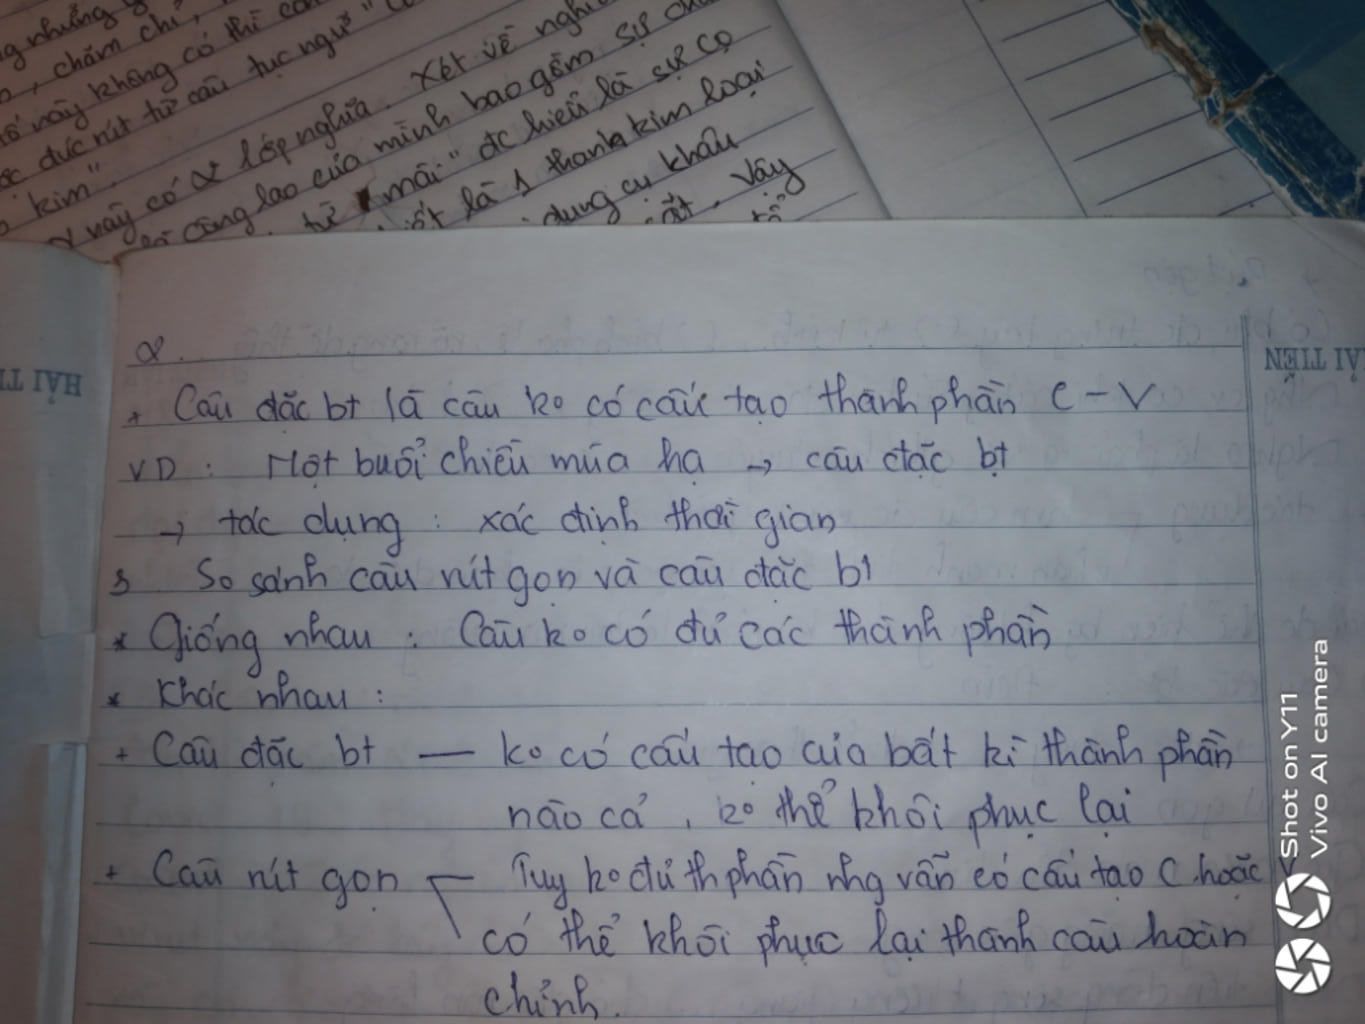 chăm chỉ,
này không có thì
đúc rút từ câu tục ngữ "
kim".
này có 2 lớp nghĩa. Xét về
công lao của mình bao gồm sự
từ mài" đc hiểu là sự cọ
là 1 thanh kim loại
dụng cụ khâu
Vậy
HẢI TIẾN
2.
+ Câu đặc bt là câu ko có cấu tạo thành phần C - V
VD : Một buổi chiều mùa hạ → câu đặc bt
→ tác dụng : xác định thời gian
3 So sánh câu rút gọn và câu đặc bt
* Giống nhau : Câu ko có đủ các thành phần
* Khác nhau :
+ Câu đặc bt — ko có cấu tạo của bất kì thành phần
nào cả , ko thể khôi phục lại
+ Câu rút gọn Tuy ko đủ thphần nhg vẫn có cấu tạo C hoặc V
có thể khôi phục lại thành câu hoàn
chỉnh.
Shot on Y11
Vivo AI camera